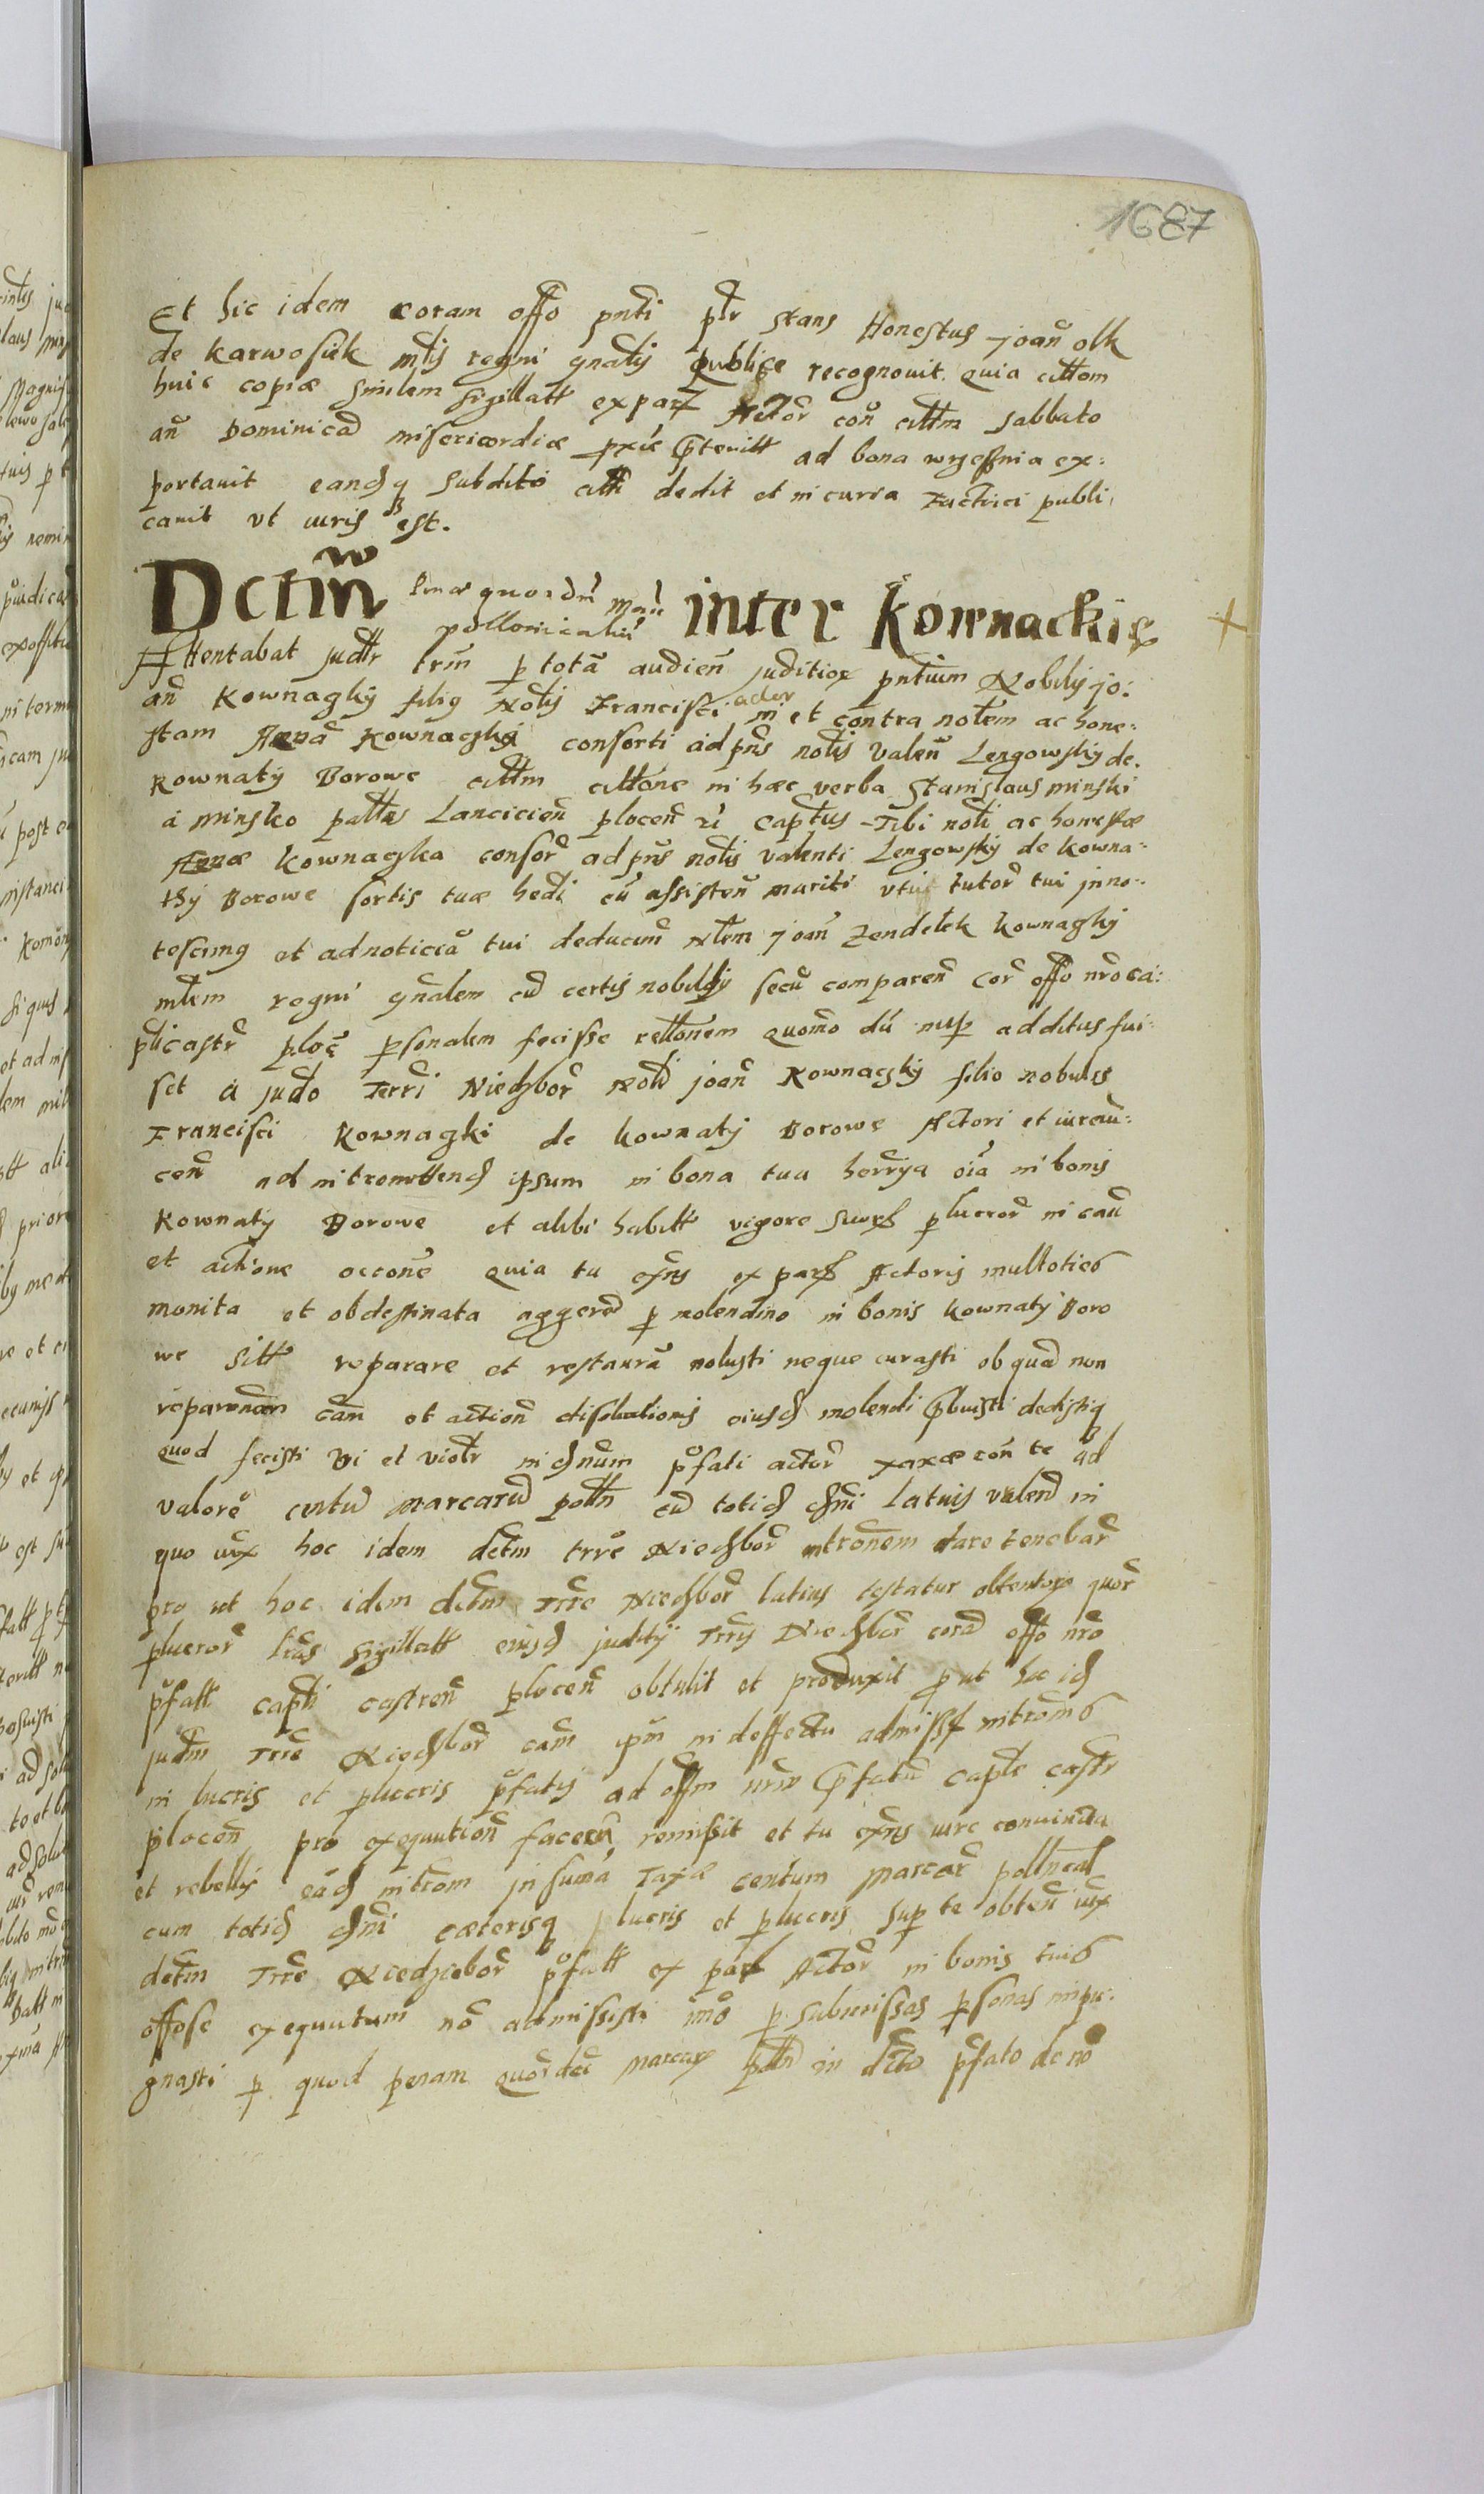 1687
Et hic idem coram offo pnti plr stans Honestus joan olk
de karwosiek mtlis regni gnalis publice recognouit quia cittom
huic copiæ similem sigillatt ex part Actor con cittm sabbato
an Dominicā misericordiæ pxie pteritt ad bona wrzessnia ex:
portauit eandq subdito citti dedit et in curia Factrici publi
cauit vt iuris est.
Dctm w inter Kownackie
pollonicaliu
Attentabat judlr trm p totā audien juditior pntium Nobilis jo:
an Kownagky filig Notis Francisci actor in et contra notem ac hone:
stam Kownaczka consorti ad pns notis Valen Lengowsky de
kownaty Borowe cittm cittone in hæc verba Stanislaus minski
a minsko pattus Lancicien plocen zi captus Tibi noti ac honestæ
Kownagska consor ad pns notis valenti Lengowsky de kowna:
thy Borowe sortis tuæ hedi cu assisten mariti vtui tutor tui inno:
tescimg et ad noticiā tui deducim Ntem joan Zendelek kownagky
mtem regni gnalem cu certis nobilby secu comparen cor offo nro ca:
pli castr ploc psonalem fecisse relltonem quomo du nup additus fui:
set a judo Terri Niedzbor noti joan Kownacsky filio nobilis
Francisci Kownagki de kownaty Borowe Actori et iureuin:
cen ad intromittend ipsum in bona tua herrya oia in bonis
Kownaty Borowe et alibi habitt vigore plucror in cau
et actione occone quia tu exns ex part Actoris multoties
monita et obdestinata aggere p molendino in bonis kownaty Boro
we sitt reparare et restaurā noluisti neque curasti ob quā non
reparonem cam et action disolutionis eiusd molendi pbuisti dedistiq
quod fecisti vi et violr in dnum pfati actor taxæ con te ad
valore centu marcaru polln cu totid dni latuis valen in
quo uix hoc idem dctm trre Niedzbor intronem dare tenebar
pro ut hoc idem dctm Trre Niedzbor latius testatur obtentor quor
plucror lras sigillatt eiusd juditij Trris Niedzbor corā offo nro
pfatt capti castren plocen obtulit et produxit p ut hoc id
judm Trre Niedzbor cam ipm in deffectu admiss intromis
in lucris et plucris pfatis ad offm nrm pfatu captle castr
plocen pro exequution facien remisit et tu exns iure conuicta
et rebellis eād introm in sumā Taxæ centum marcar pollncal
cum totid dni cæterisq lucris et plucris sup te obten uix
dctm Trre Niedzwbor pfatt ex part Actor in bonis tuis
offose exequutum nō admissisti imo p submissas psonas inpu:
gnasti p quod penam quordci marcar polln in dcto pfato de nō